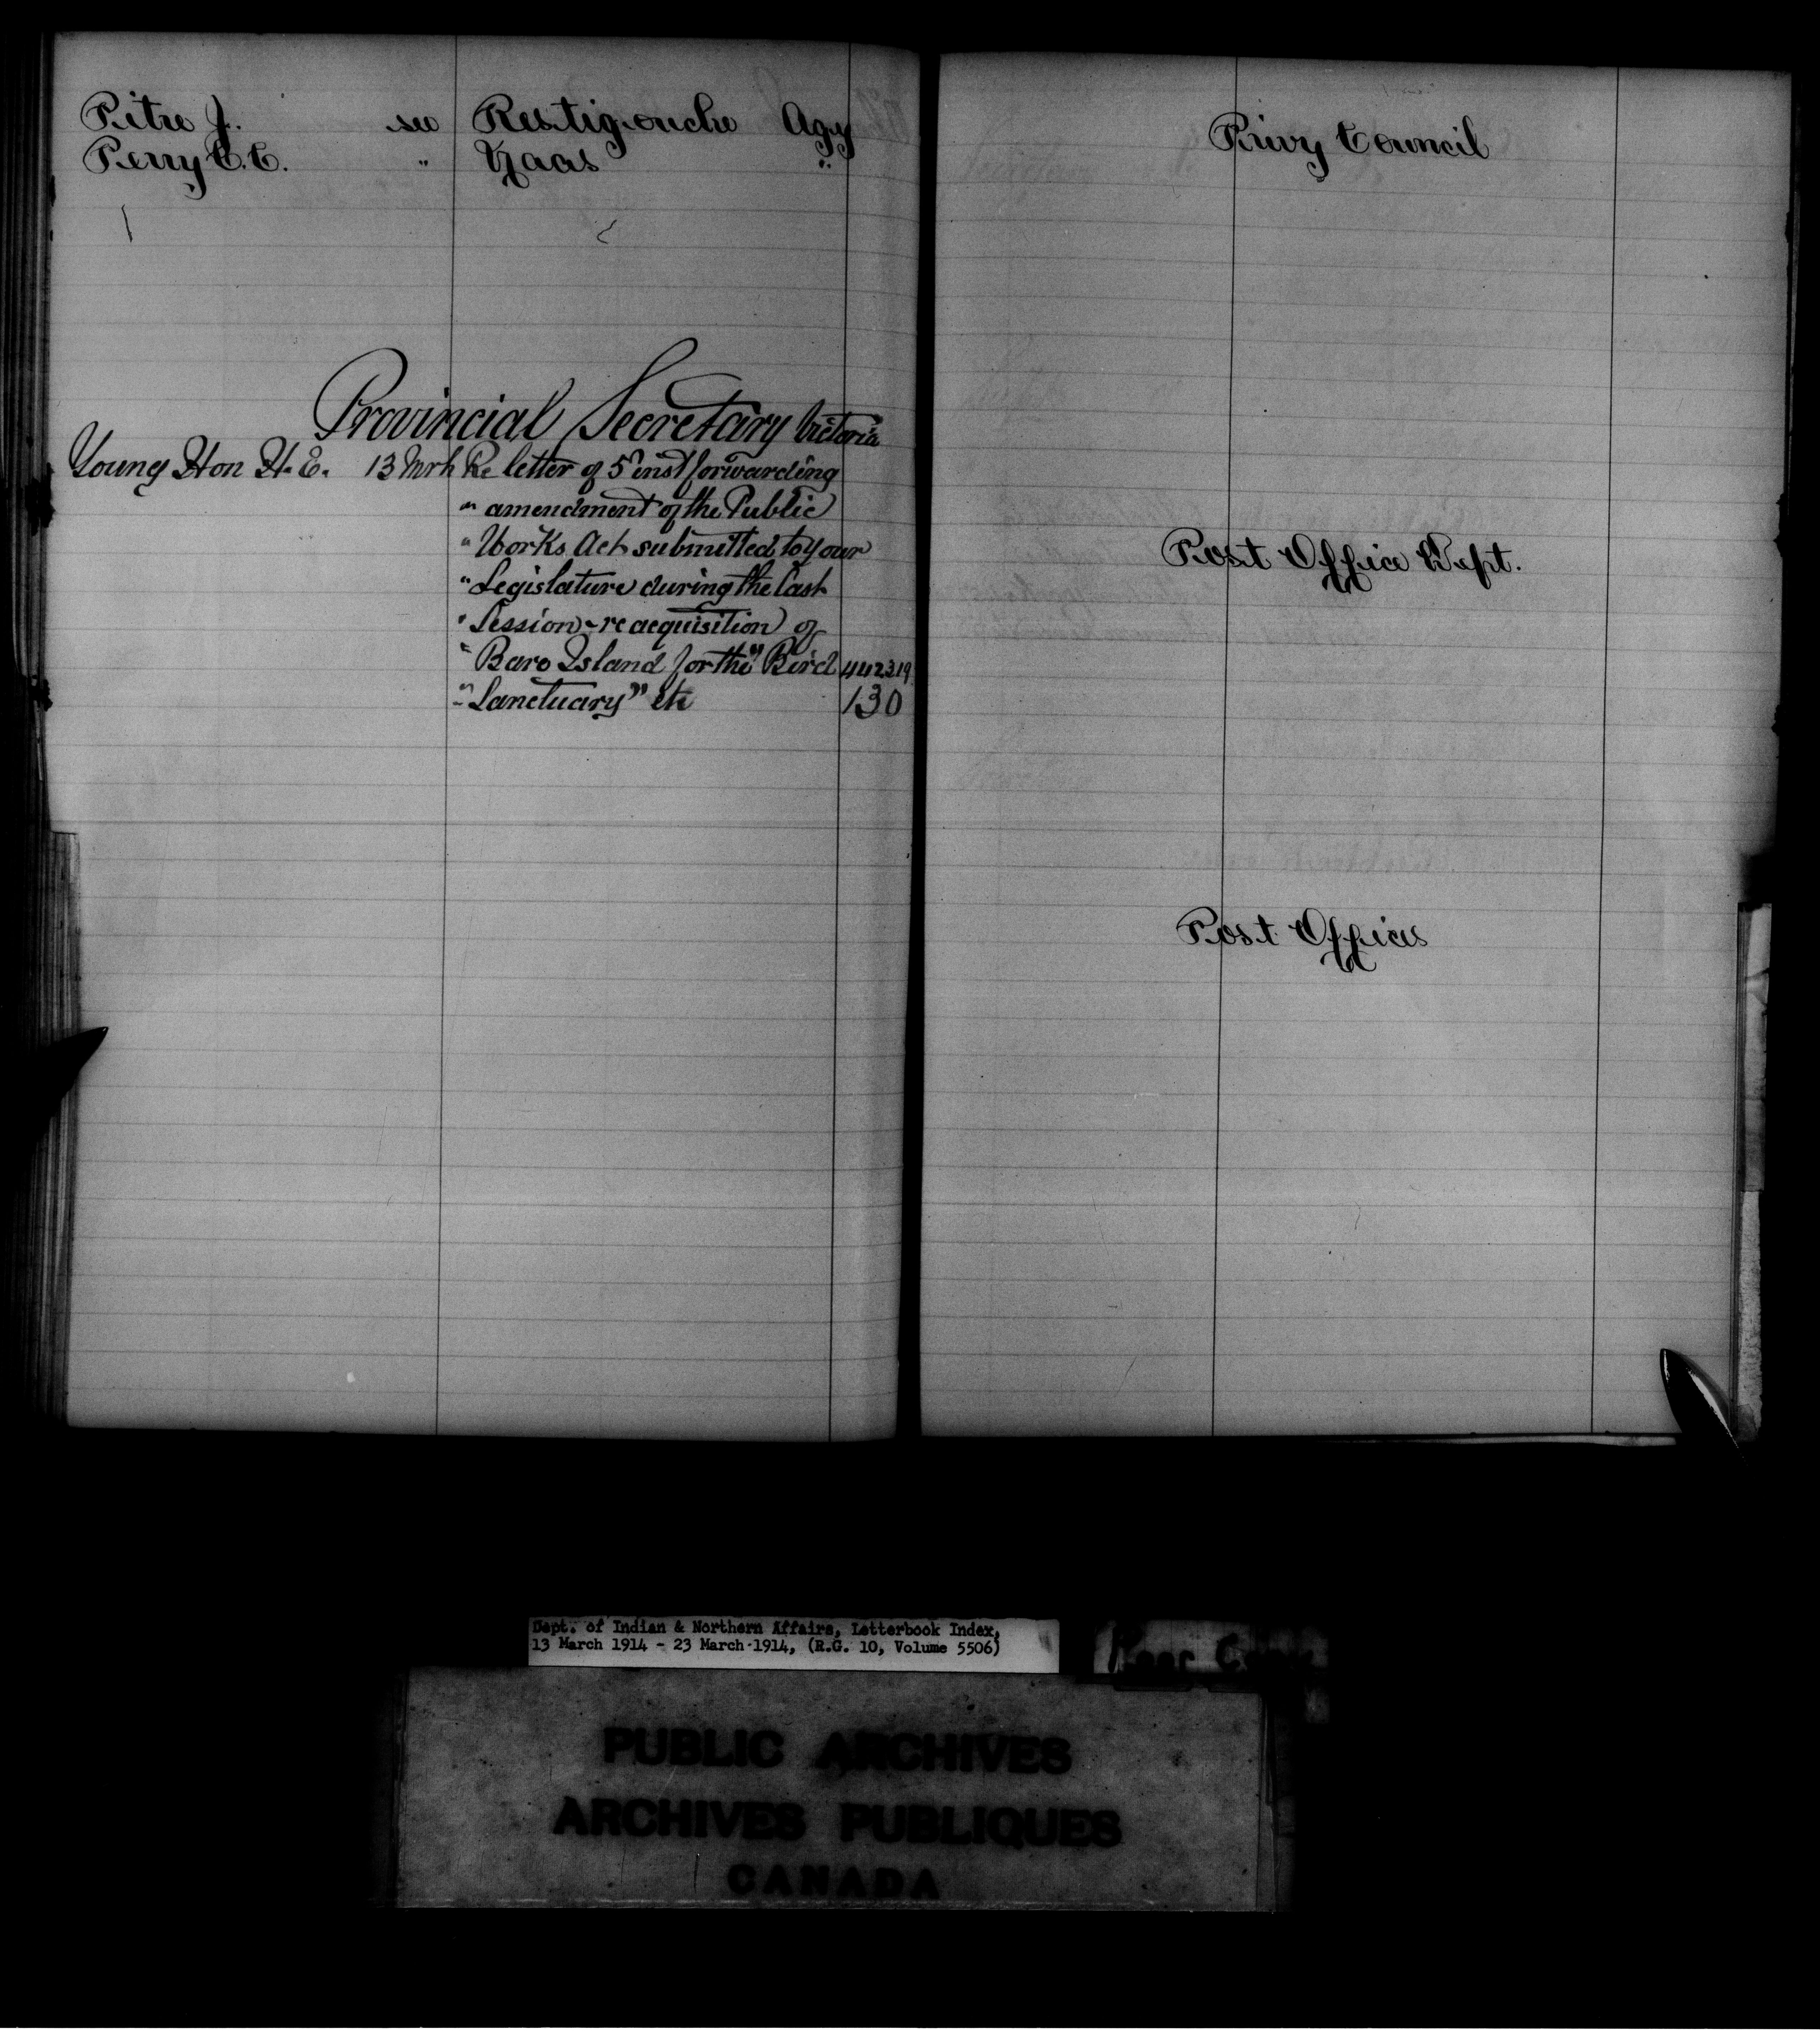 Pitre J. see Restigouche Agy
Perry C.C. " Naas "
Provincial Secretary Victoria
Young Hon H.E. 13 Mrh Re letter of 5 inst forwarding
" amendment of the Public
" Works Act submitted to your
" Legislature during the last
" Session - re acquisition of
" Bare Island for the "Bird 442319
" Sanctuary" etc 130
Privy Council
Post Office Dept.
Post Offices
Dept. of Indian & Northern Affairs, Letterbook Index,
13 March 1914 - 23 March 1914, (R.G. 10, Volume 5506)
PUBLIC ARCHIVES
ARCHIVES PUBLIQUES
CANADA